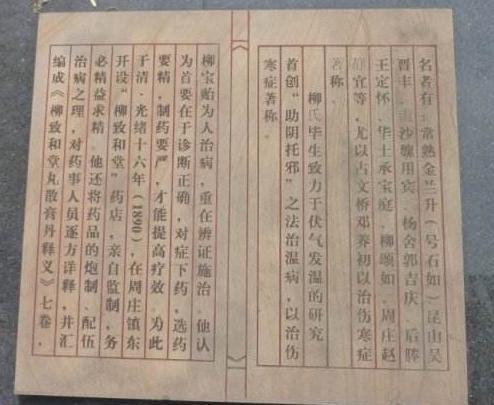 名者有：常熟金兰升（号石如）昆山吴
晋丰、沙缠用宾、杨舍郭吉庆、后塍
王定怀、华士承宝庭、柳颂如、周庄赵
静宜等，尤以古文桥邓养初以治伤寒症
著称。
柳氏毕生致力于伏气发温的研究
首创“助阴托邪”之法治温病，以治伤
寒症著称。
柳宝贻为人治病，重在辨证施治。他认
为首要在于诊断正确，对症下药，选药
要精，制药要严，才能提高疗效。为此
于清·光绪十六年（1890），在周庄镇东
开设“柳致和堂”药店，亲自监制，务
必精益求精。他还将药品的炮制、配伍
治病之理，对药事人员逐方详释，并汇
编成《柳致和堂丸散膏丹释义》七卷，